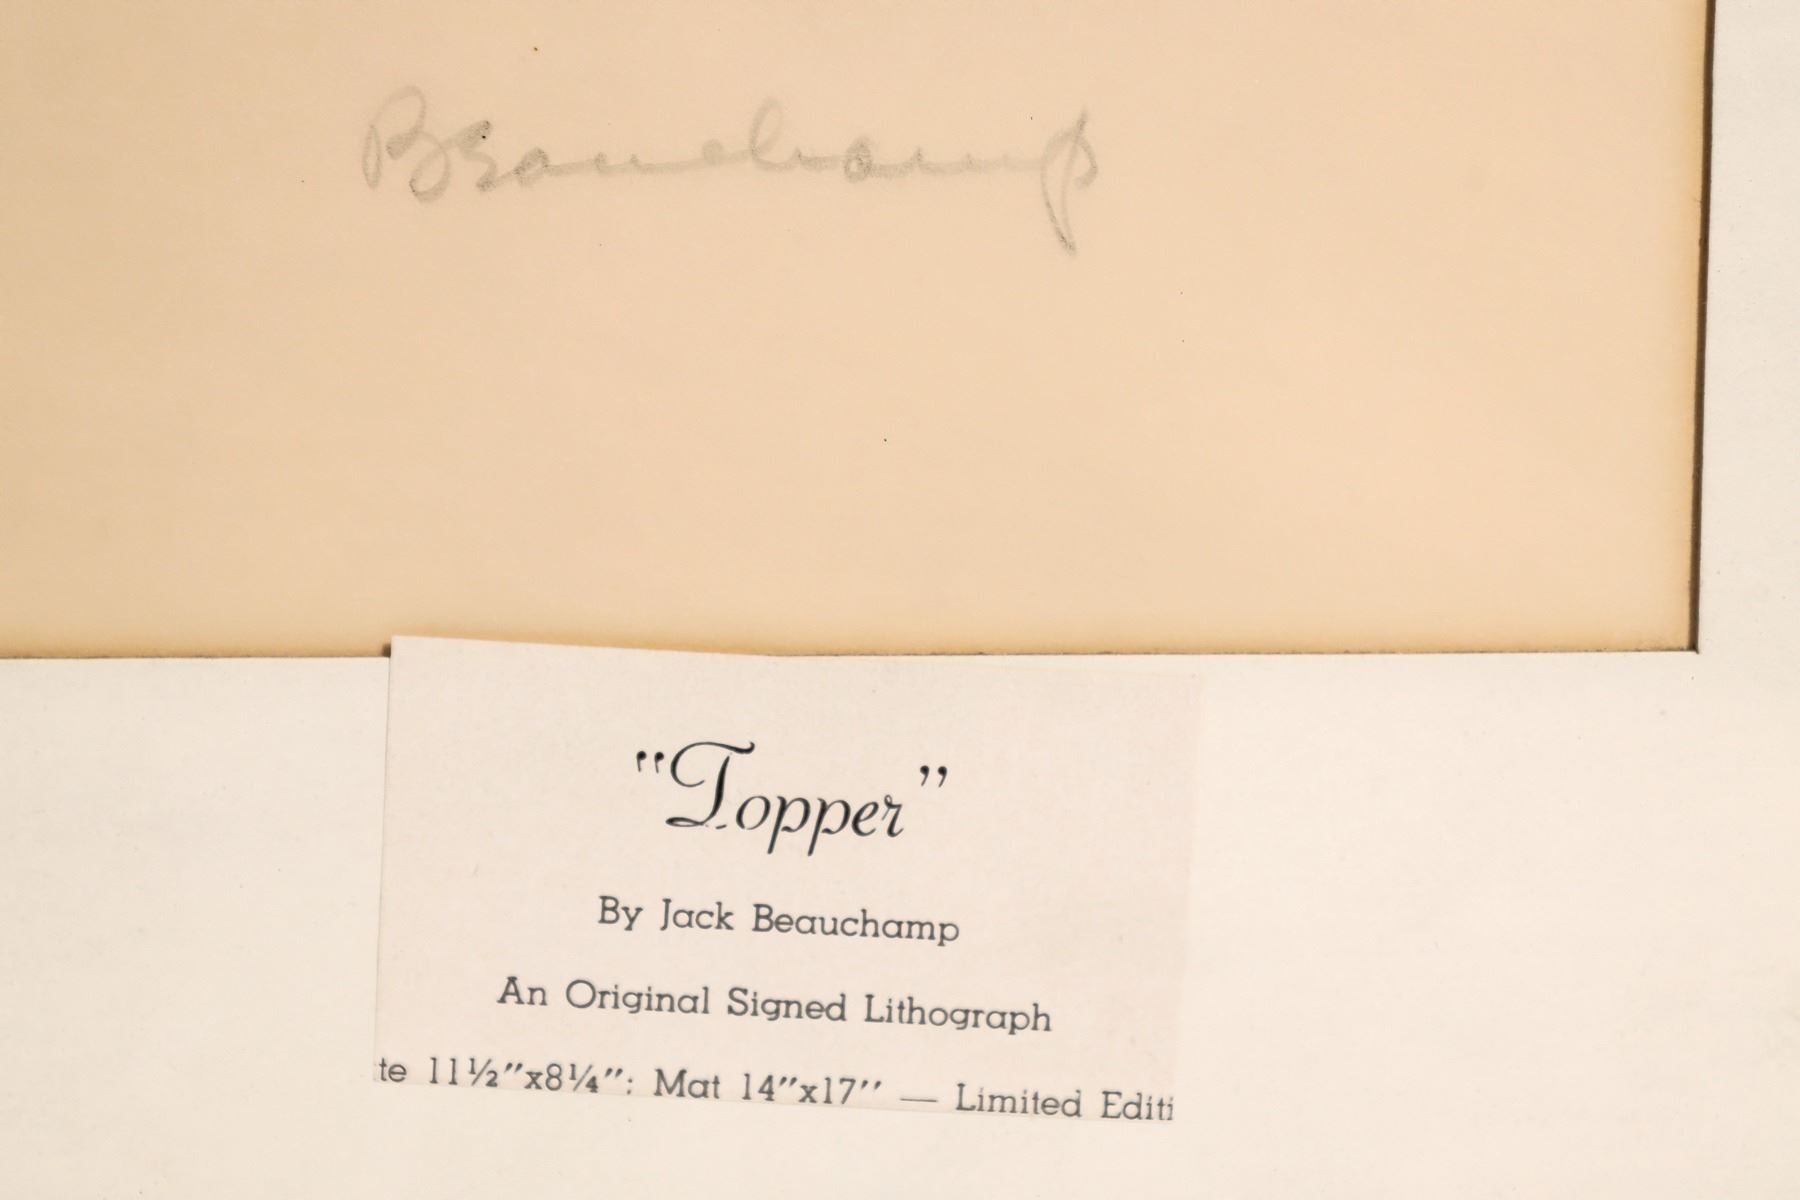 Beauchamp
"Topper"
By Jack Beauchamp
An Original Signed Lithograph
te 11½"x8¼": Mat 14"x17" — Limited Editi